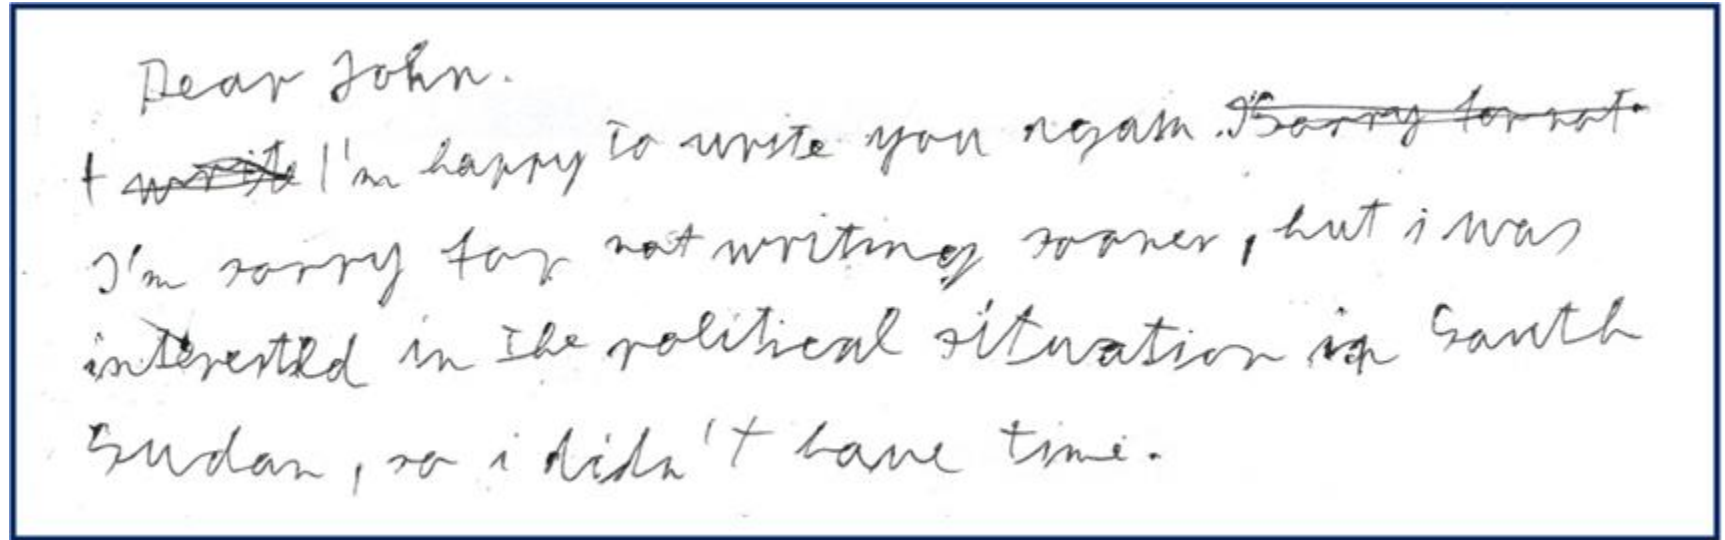 Dear John.
I write I'm happy to write you again. I'Sorry for not
I'm sorry for not writing sooner, but i was
interested in the political situation in South
Sudan, so i didn't have time.